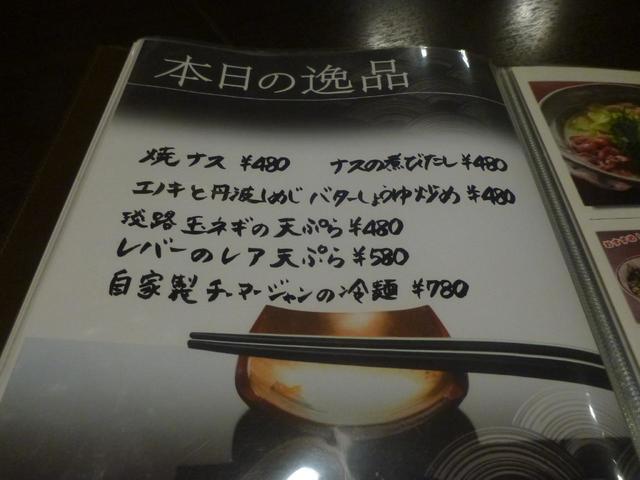 本日の逸品
焼ナス ¥480 ナスの煮びたし ¥480
エノキと丹波しめじ バターしょうゆ炒め ¥480
淡路玉ネギの天ぷら ¥480
レバーのレア天ぷら ¥580
自家製チャーマージャンの冷麺 ¥780